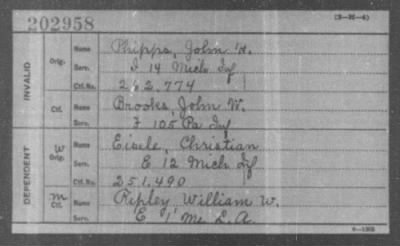 202958
(3—25—4)
INVALID
Orig.
Name Phipps, John H.
Serv. I 14 Mich Inf
Ctf. No. 262.774
Ctf.
Name Brooks, John W.
Serv. F 105 Pa Inf
DEPENDENT
W
Orig.
Name Eisele, Christian
Serv. E 12 Mich Inf
Ctf. No. 251.490
M
Ctf.
Name Ripley, William W.
Serv. E 1" Me L. A.